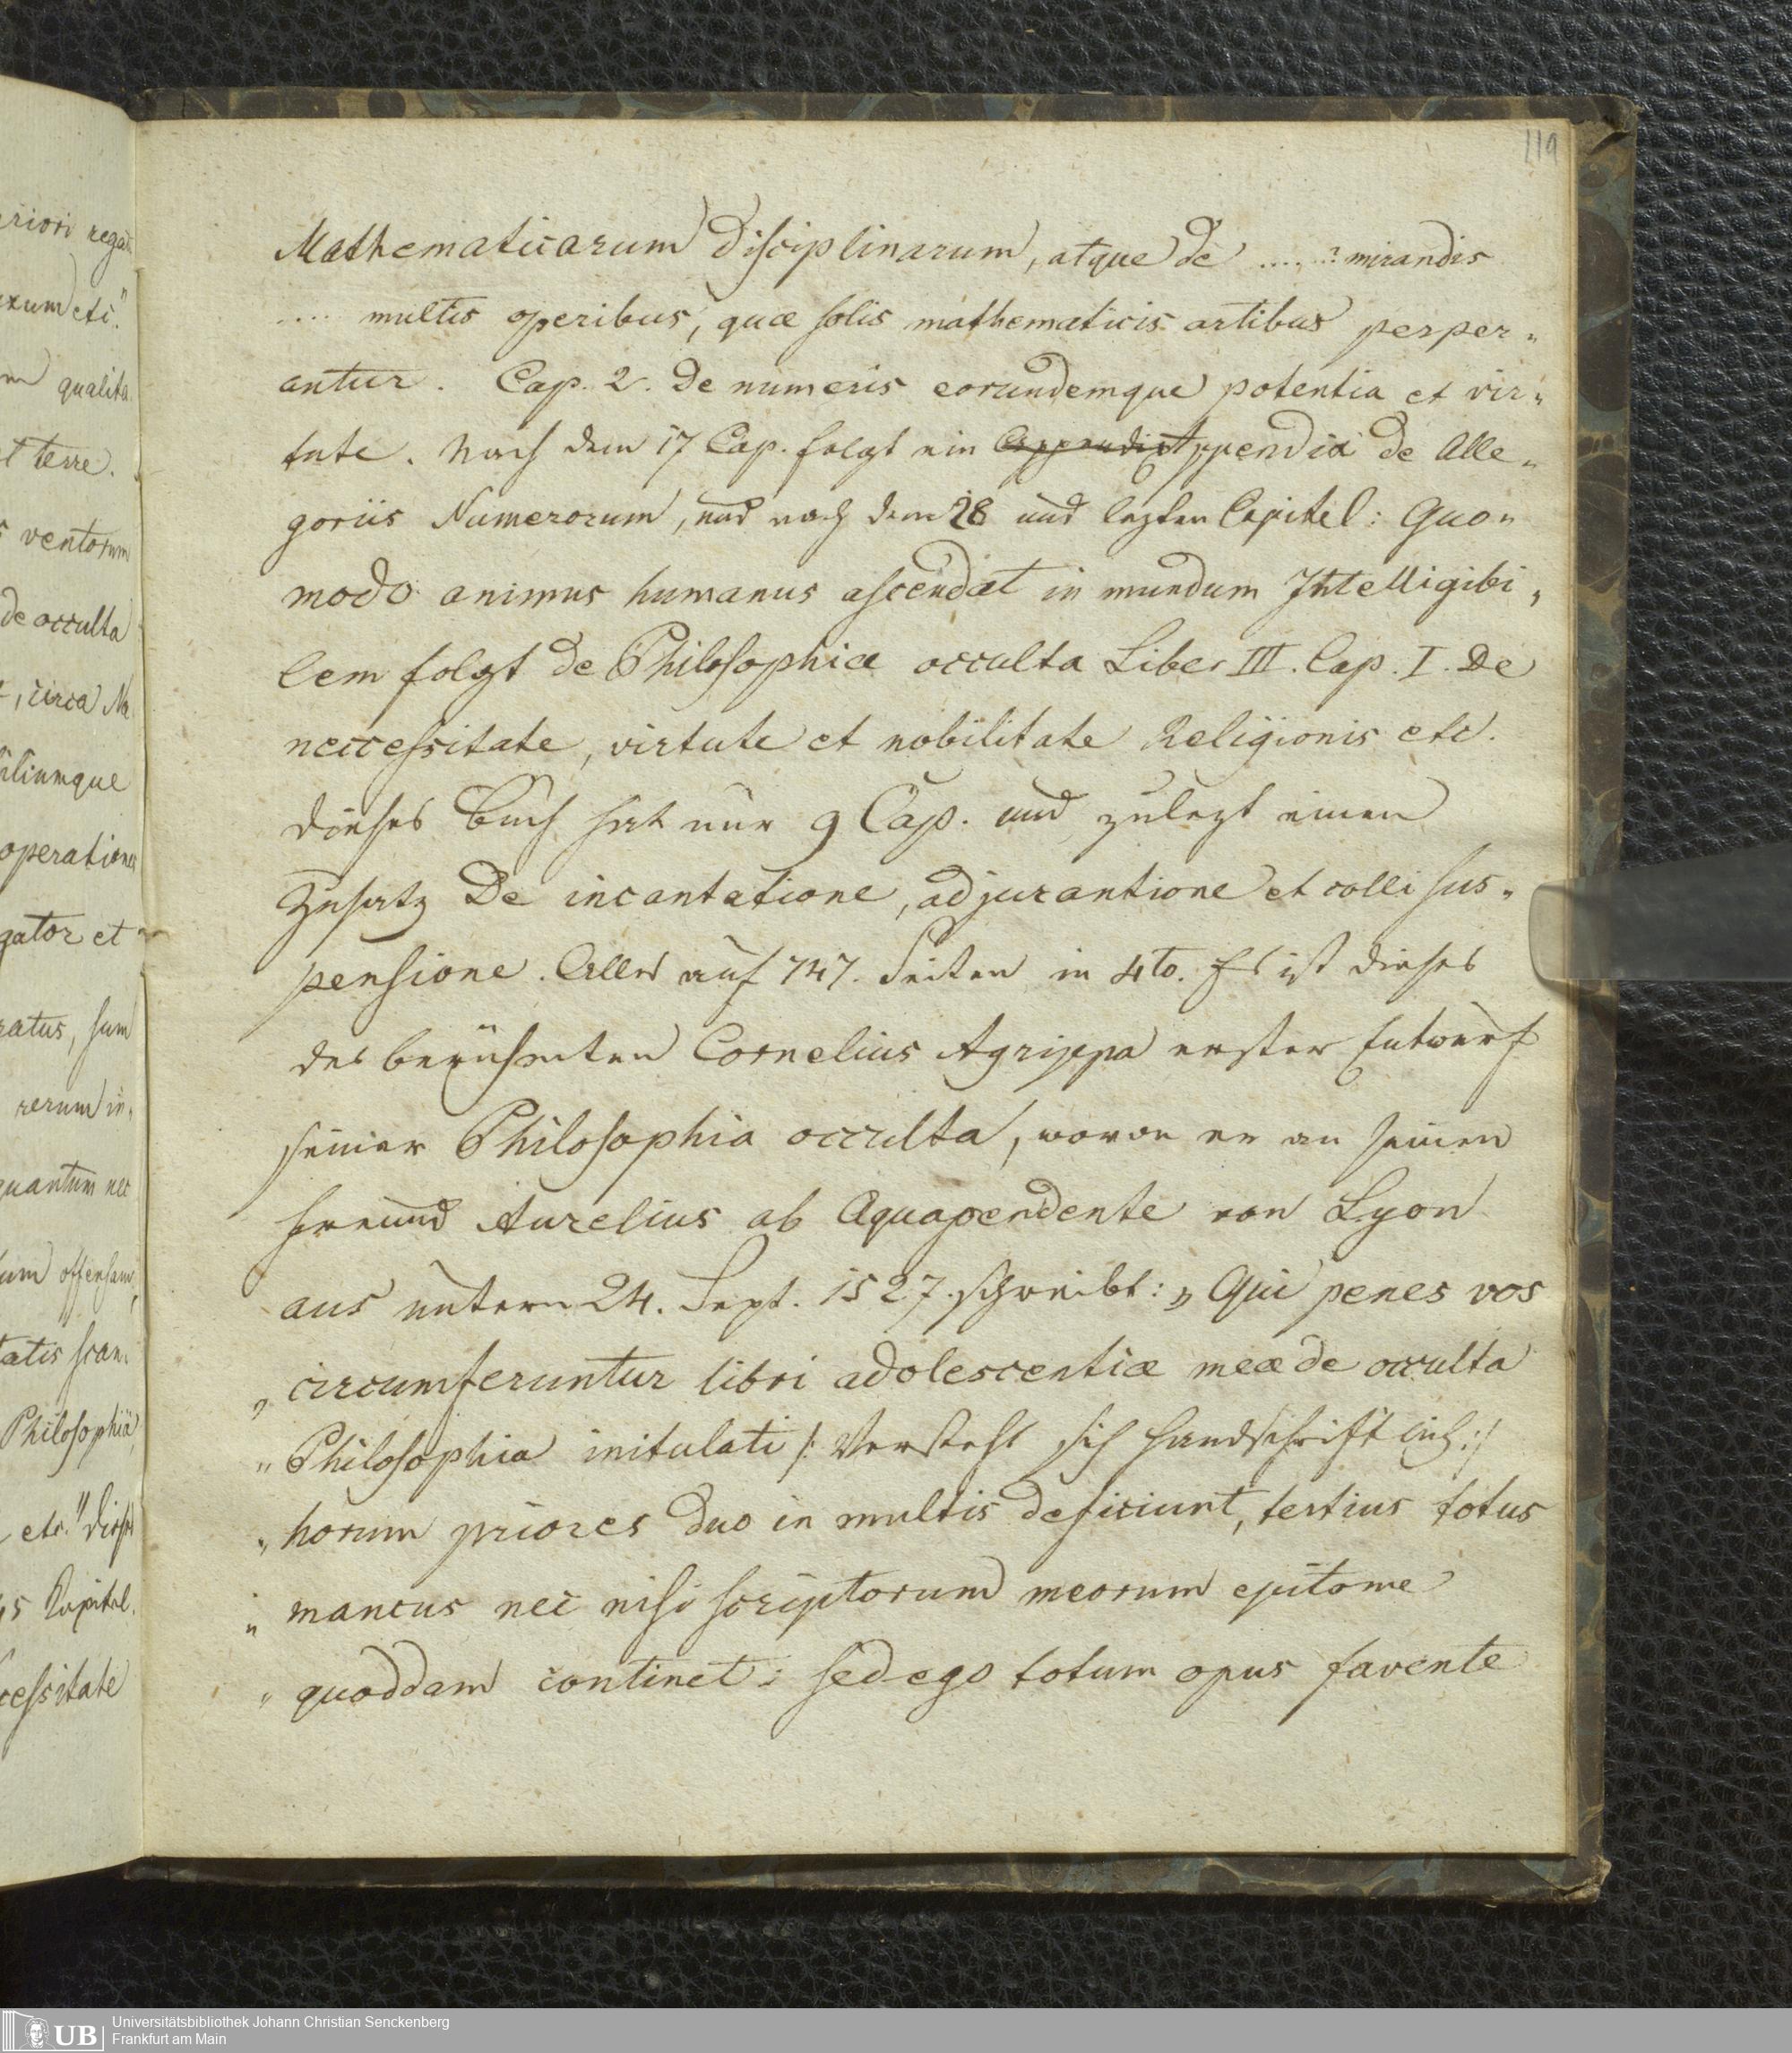 119
Mathematicarum Disciplinarum, atque de ......? mirandis
.... multis operibus, quæ solis mathematicis artibus perper„
antur. Cap. 2. De numeris eorundemque potentia et vir„
tute. Nach dem 17 Cap. folgt ein Appendix Appendix de Alle„
goriis Numerorum, und nach dem 28 und lezten Capitel: Quo„
modo animus humanus ascendat in mundum Intelligibi„
lem folgt de Philosophia occulta Liber III. Cap. I. De
neccessitate, virtute et nobilitate Religionis etc.
dieses Buch hat nur 9 Cap. und zulezt einen
Zusatz De incantatione, adjurantione et colli sus„
pensione. Alles auf 747. Seiten in 4to. Es ist dieses
des berühmten Cornelius Agrippa erster Entwurf
seiner Philosophia occulta, wovon er an seinen
Freund Aurelius ab Aquapendente von Lyon
aus unterm 24. Sept. 1527. schreibt: „Qui penes vos
„circumferuntur libri adolescentiæ meæ de occulta
„Philosophia initulati /: Versteht sich handschriftlich:/
„horum priores duo in multis deficiunt, tertius totus
„mancus nec nisi scriptorum meorum epitome
„quoddam continet: sed ego totum opus favente
eriori rega
exum etc."
qualita
et terre.
ventorum
de occulta
, circa Na
iliumque
operationes
gator et
ratus, sum
rerum in„
quantum nec
um offensam,
tatis scan„
Philosophia
, etc." Dieses
45 Kapitel.
cessitate
UB
Universitätsbibliothek Johann Christian Senckenberg
Frankfurt am Main